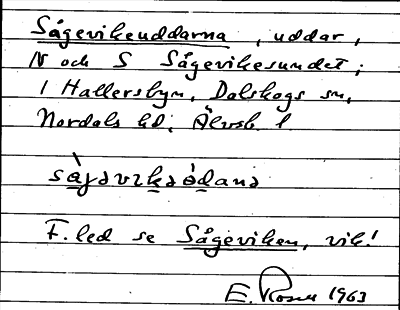 Sågevikeuddarna, uddar,
N och S Sågevikesundet;
i Hallersbyn, Dalskogs sn,
Nordals hd; Älvsb. l
sàgəvikəòdana
F. led se Sågeviken, vik!
E. Rosell 1963